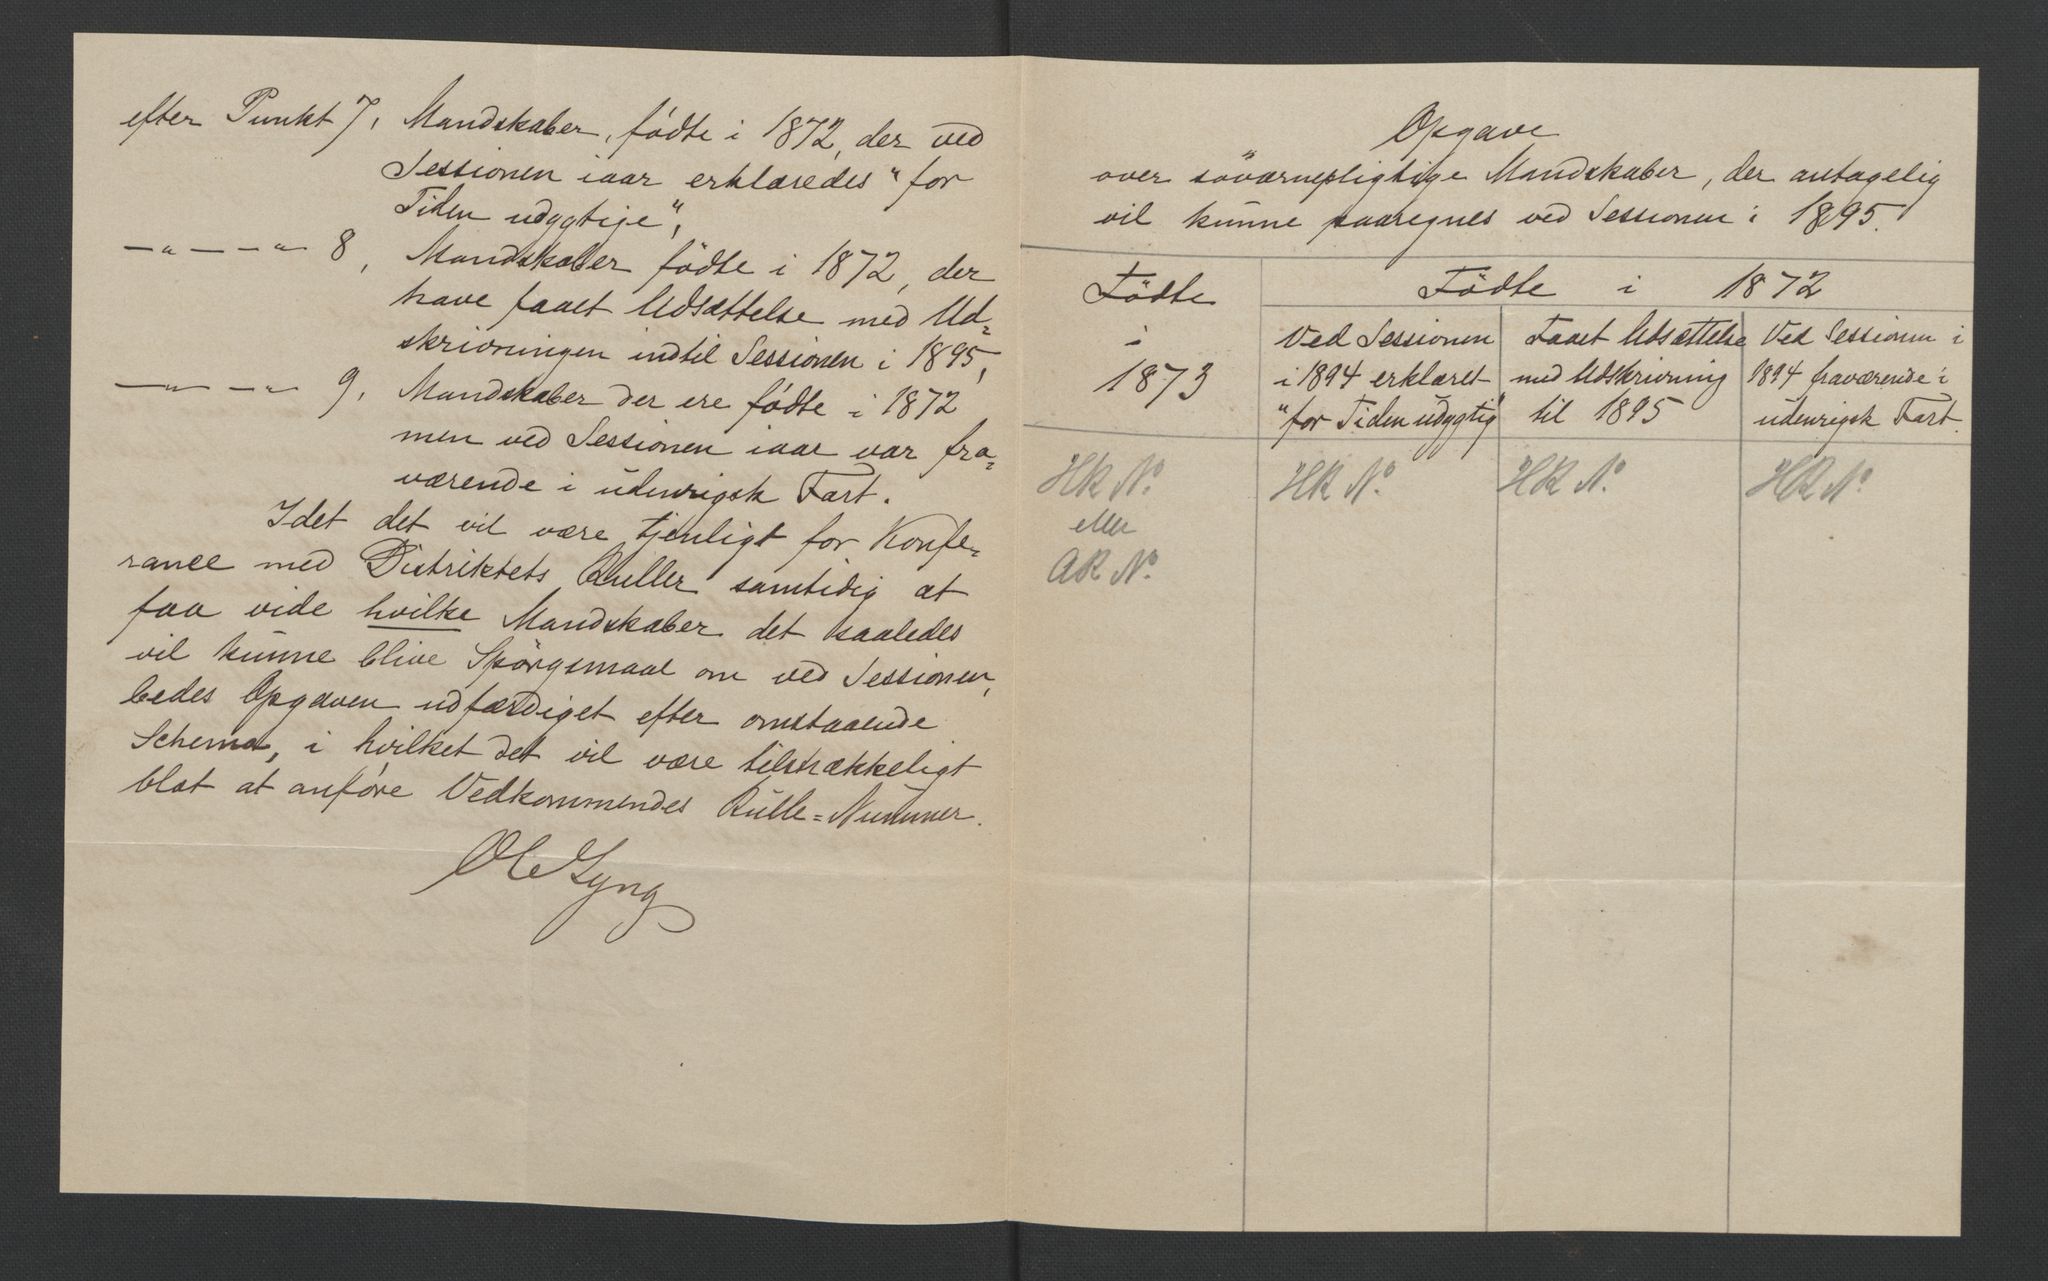 efter Punkt 7, Mandskaber, födte i 1872, der ved
Sessionen iaar erklæredes "for
Tiden udygtige",
—"—"— 8, Mandskaber födte i 1872, der
have faaet Udsættelse med Ud=
skrivningen indtil Sessionen i 1895,
—"—"— 9, Mandskaber der ere födte i 1872
men ved Sessionen iaar var fra=
værende i udenrigsk Fart.
Idet det vil være tjenligt for Konfe=
rance med Distriktets Ruller samtidig at
faa vide hvilke Mandskaber det saaledes
vil kunne blive Spörgsmaal om ved Sessionen,
bedes Opgaven udfærdiget efter omstaaende
Schema, i hvilket det vil være tilstrækkeligt
blot at anföre Vedkommendes Rulle=Nummer.
Opgave
over söværnepligtige Mandskaber, der antagelig
vil kunne paaregnes ved Sessionen i 1895.
Födte
i
1873
Födte i 1872
Ved Sessionen
i 1894 erklæret
"for Tiden udygtig"
Faaet Udsættelse
med Udskrivning
til 1895
Ved Sessionen i
1894 fraværende i
udenrigsk Fart.
HR No.
eller
AR No.
HR No.
HR No.
HR No.